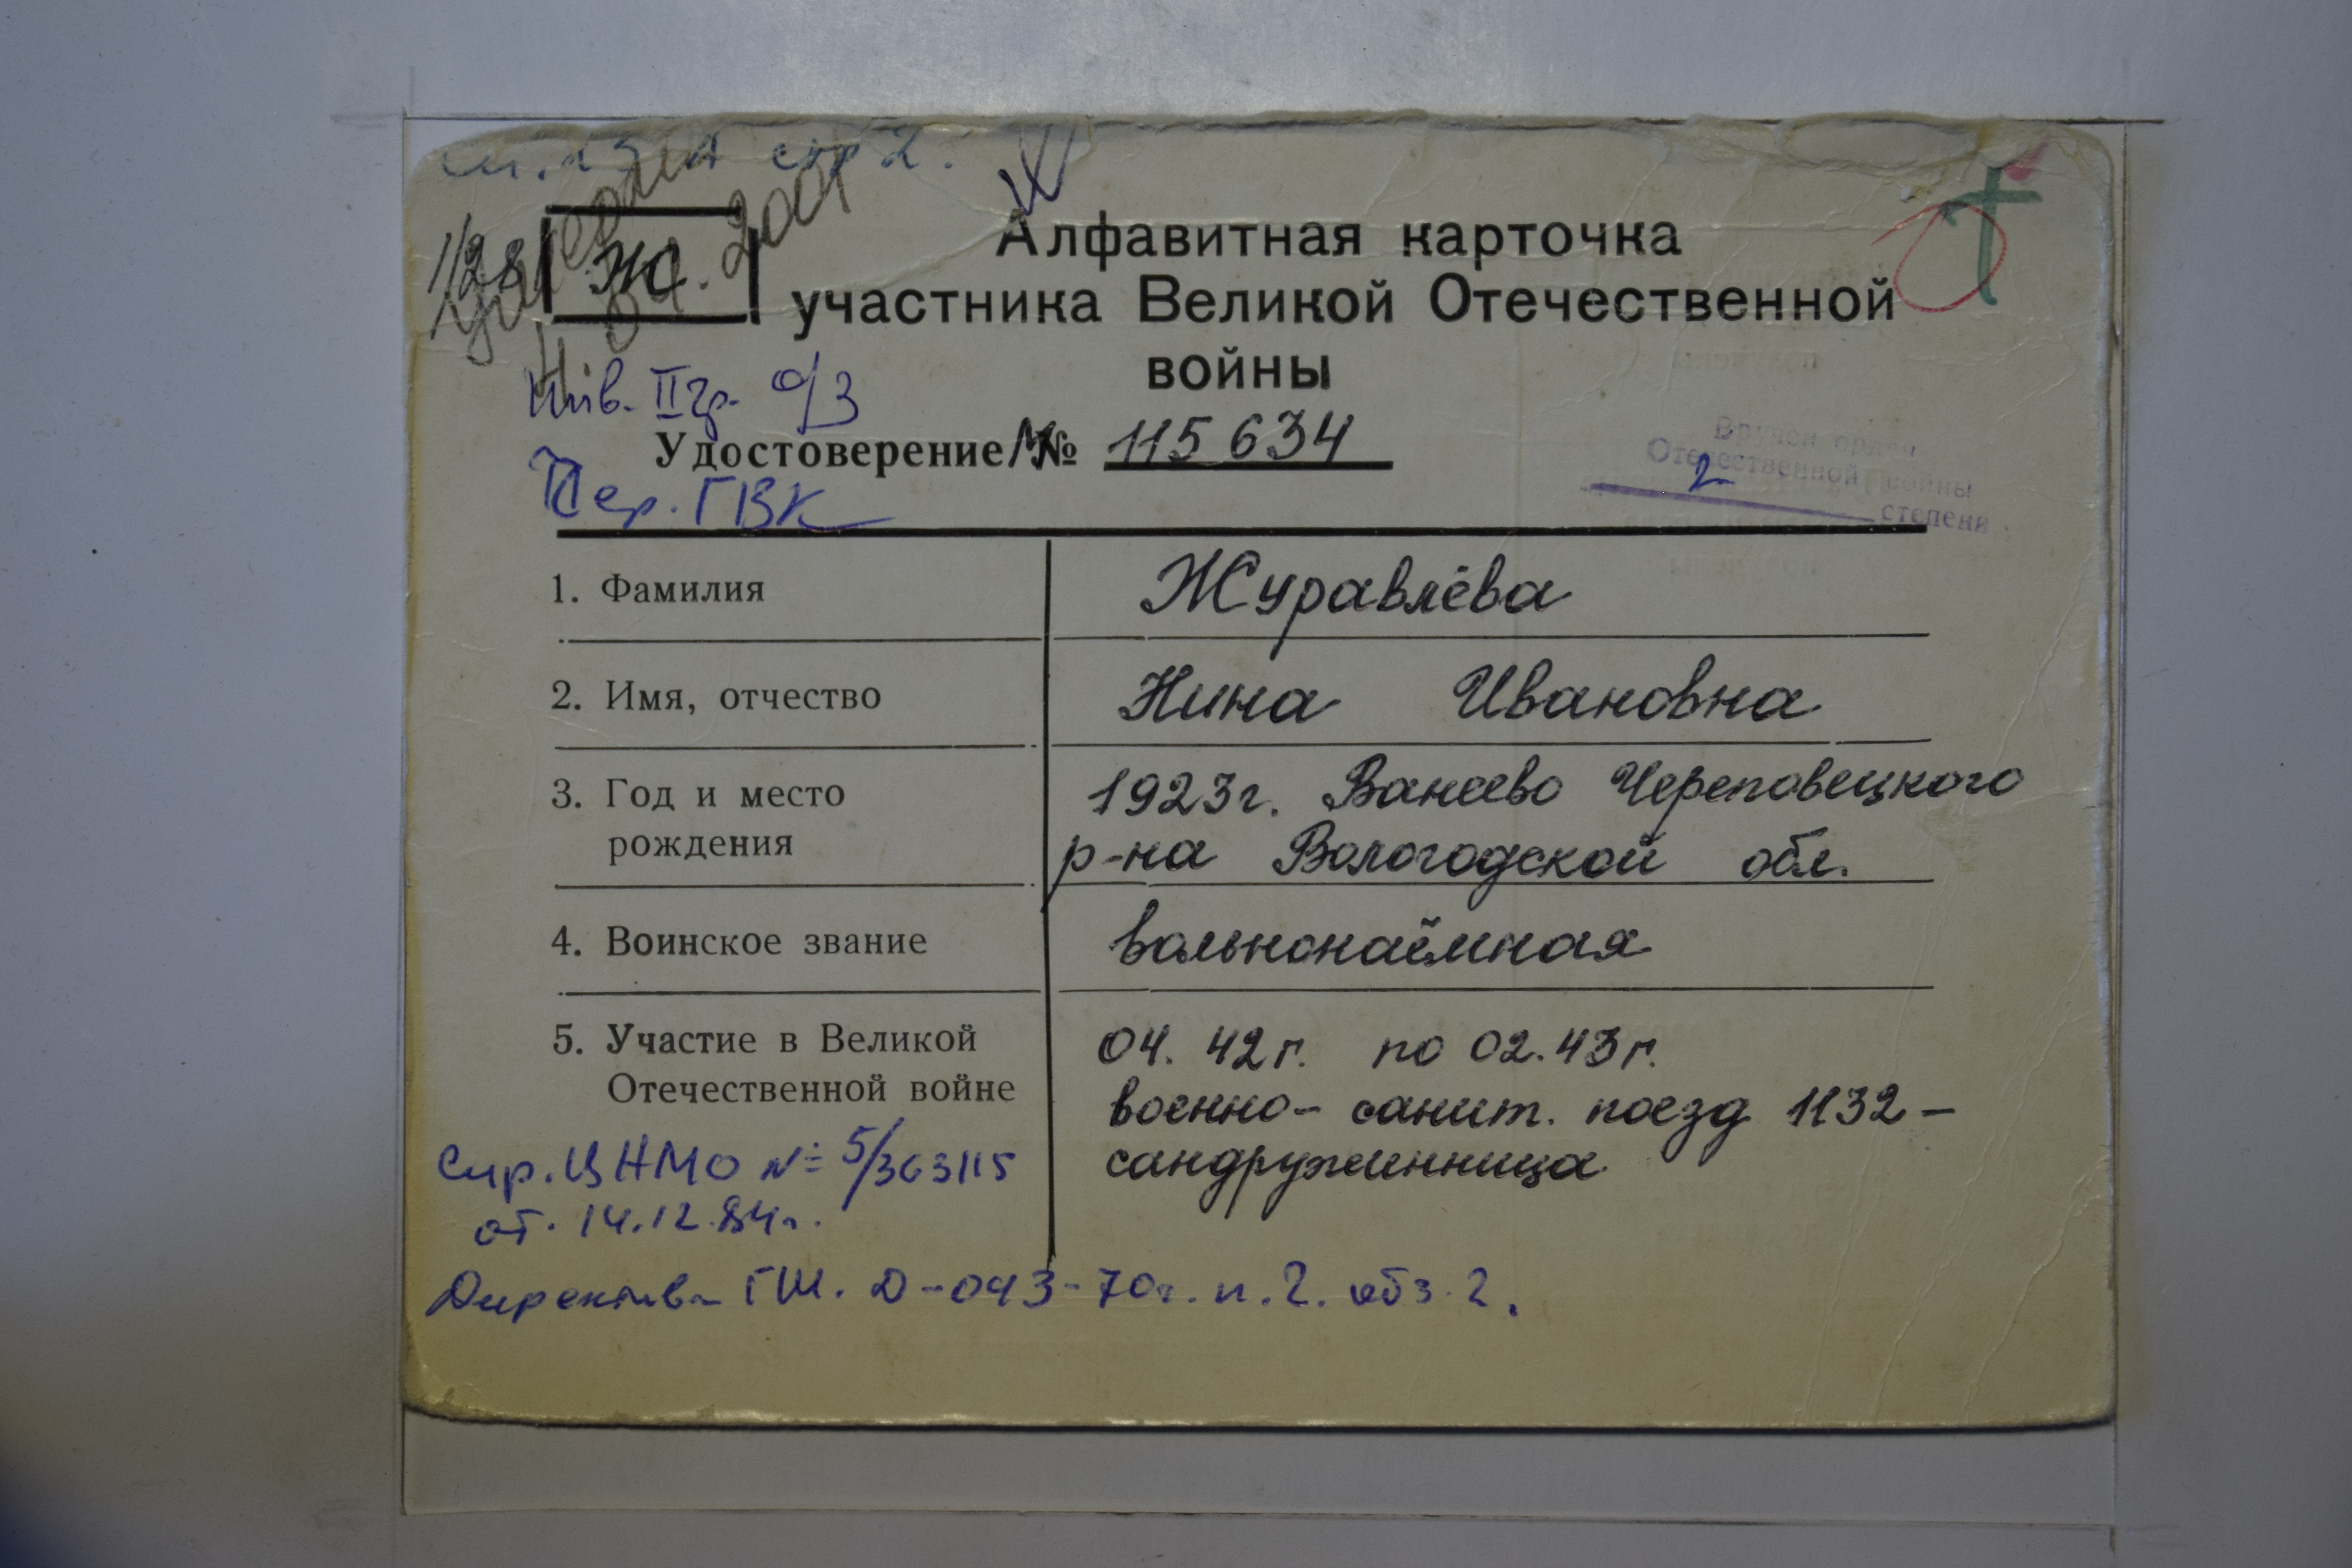 1/28
Ж.
Алфавитная карточка
участника Великой Отечественной
войны
Инв. II гр. о/з
Удостоверение № 115634
Чер. ГВК
Вручен орден
Отечественной войны
2 степени
1. Фамилия Журавлёва
2. Имя, отчество Нина Ивановна
3. Год и место 1923г. Ванеево Череповецкого
рождения р-на Вологодской обл.
4. Воинское звание вольнонаёмная
5. Участие в Великой 04. 42г. по 02.43г.
Отечественной войне военно-санит. поезд 1132 -
сандруженница
№ 5/363115
от. 14.12.84г.
Директива ГШ. Д-043-70г. п.2. абз.2.